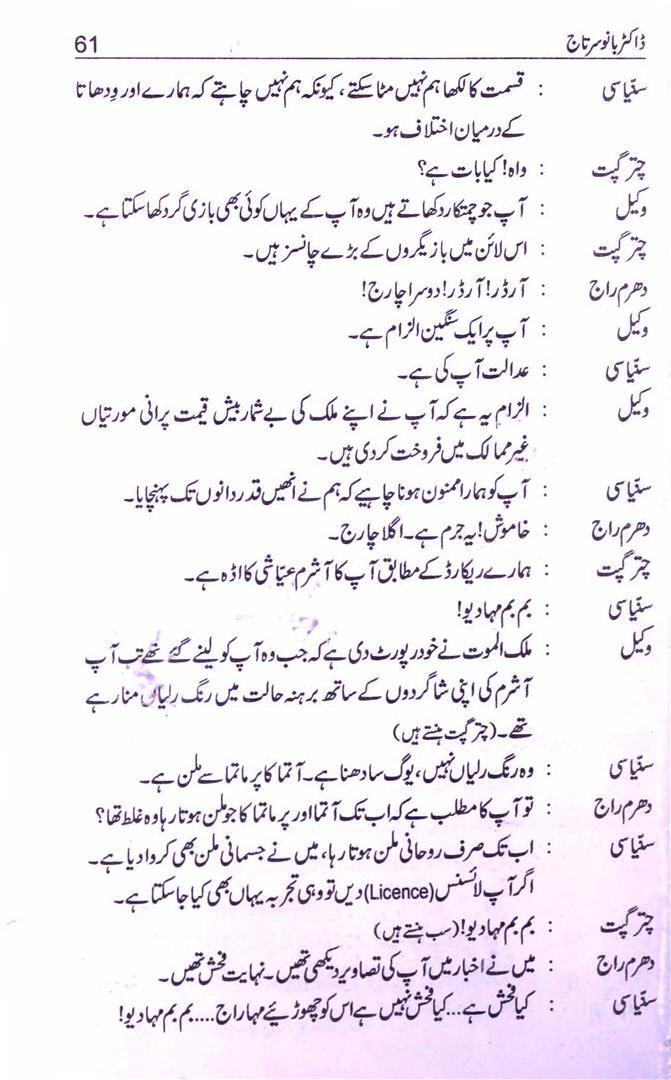 ڈاکٹر بانو سرتاج 61
سنّیاسی : قسمت کا لکھا ہم نہیں مٹا سکتے، کیونکہ ہم نہیں چاہتے کہ ہمارے اور ودھاتا
کے درمیان اختلاف ہو۔
چترگپت : واہ! کیا بات ہے؟
وکیل : آپ جو چمتکار دکھاتے ہیں وہ آپ کے یہاں کوئی بھی بازی گر دکھا سکتا ہے۔
چترگپت : اس لائن میں بازیگروں کے بڑے چانسز ہیں۔
دھرم راج : آرڈر! آرڈر! دوسرا چارج!
وکیل : آپ پر ایک سنگین الزام ہے۔
سنّیاسی : عدالت آپ کی ہے۔
وکیل : الزام یہ ہے کہ آپ نے اپنے ملک کی بے شمار بیش قیمت پرانی مورتیاں
غیر ممالک میں فروخت کر دی ہیں۔
سنّیاسی : آپ کو ہمارا ممنون ہونا چاہیے کہ ہم نے انھیں قدردانوں تک پہنچایا۔
دھرم راج : خاموش! یہ جرم ہے۔ اگلا چارج۔
چترگپت : ہمارے ریکارڈ کے مطابق آپ کا آشرم عیّاشی کا اڈہ ہے۔
سنّیاسی : بم بم مہادیو!
وکیل : ملک الموت نے خود رپورٹ دی ہے کہ جب وہ آپ کو لینے گئے تھے تب آپ
آشرم کی اپنی شاگردوں کے ساتھ برہنہ حالت میں رنگ رلیاں منا رہے
تھے۔ (چترگپت ہنستے ہیں)
سنّیاسی : وہ رنگ رلیاں نہیں، یوگ سادھنا ہے۔ آتما کا پرماتما سے ملن ہے۔
دھرم راج : تو آپ کا مطلب ہے کہ اب تک آتما اور پرماتما کا جو ملن ہوتا رہا وہ غلط تھا؟
سنّیاسی : اب تک صرف روحانی ملن ہوتا رہا، میں نے جسمانی ملن بھی کروا دیا ہے۔
اگر آپ لائسنس (Licence) دیں تو وہی تجربہ یہاں بھی کیا جا سکتا ہے۔
چترگپت : بم بم مہادیو! (سب ہنستے ہیں)
دھرم راج : میں نے اخبار میں آپ کی تصاویر دیکھی تھیں۔ نہایت فحش تھیں۔
سنّیاسی : کیا فحش ہے... کیا فحش نہیں ہے اس کو چھوڑئیے مہاراج.....بم بم مہادیو!